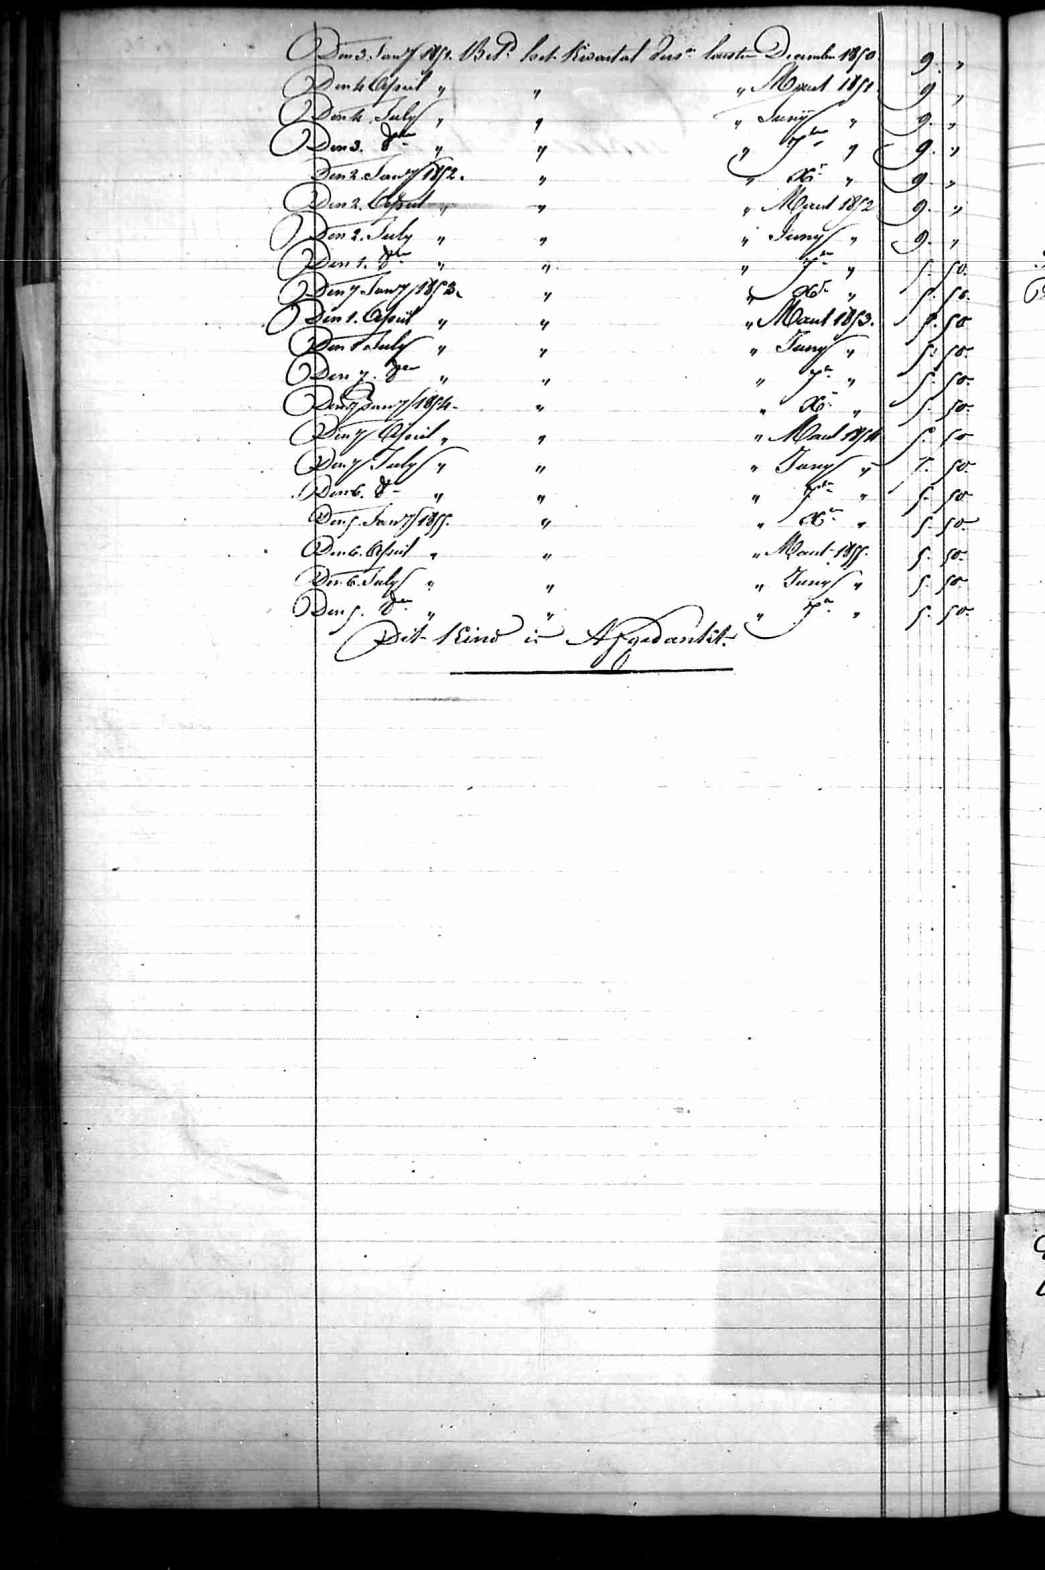 Den 3. Jany 1851. Betd het Kwartaal Verss laatsten December 1850 9. „
Den 4 April „ „ „ Maart 1851 9. „
Den 4. July „ „ „ Juny „ 9. „
Den 3. 8ber „ „ „ 7ber „ 9. „
Den 2. Jany 1852. „ „ Xr „ 9. „
Den 2. April „ „ „ Maart 1852 9. „
Den 2. July „ „ „ Juny „ 9. „
Den 1. 8ber „ „ „ 7ber „ 5. 50.
Den 7 Jany 1853. „ „ Xr „ 5. 50.
Den 1. April „ „ „ Maart 1853. 5. 50
Den 1 July „ „ „ Juny „ 5. 50.
Den 7. 8ber „ „ „ 7ber „ 5. 50.
Den 7 Jany 1854. „ „ Xr „ 5. 50.
Den 7 April „ „ „ Maart 1854 5. 50
Den 7 July „ „ „ Juny „ 5. 50.
Den 6. 8r „ „ „ 7ber „ 5. 50.
Den 5. Jany 1855. „ „ Xr „ 5. 50.
Den 6. April „ „ „ Maart 1855. 5. 50.
Den 6. July „ „ „ Juny „ 5. 50.
Den 5. 8ber „ „ „ 7ber „ 5. 50.
Dit Kind is Afgedankt.